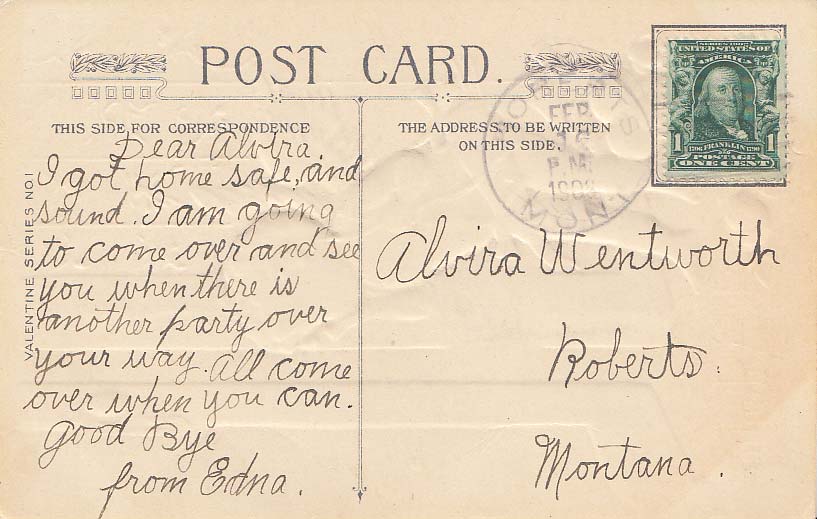 POST CARD.
THIS SIDE FOR CORRESPONDENCE
THE ADDRESS TO BE WRITTEN
ON THIS SIDE.
VALENTINE SERIES NO.1
Dear Alvira.
I got home safe, and
sound. I am going
to come over and see
you when there is
another party over
your way. All come
over when you can.
Good Bye
from Edna.
Alvira Wentworth
Roberts.
Montana.
FEB
P.M.
MONT
SERIES 1902
UNITED STATES OF
AMERICA
1 1
1706 FRANKLIN 1790
POSTAGE
ONE CENT